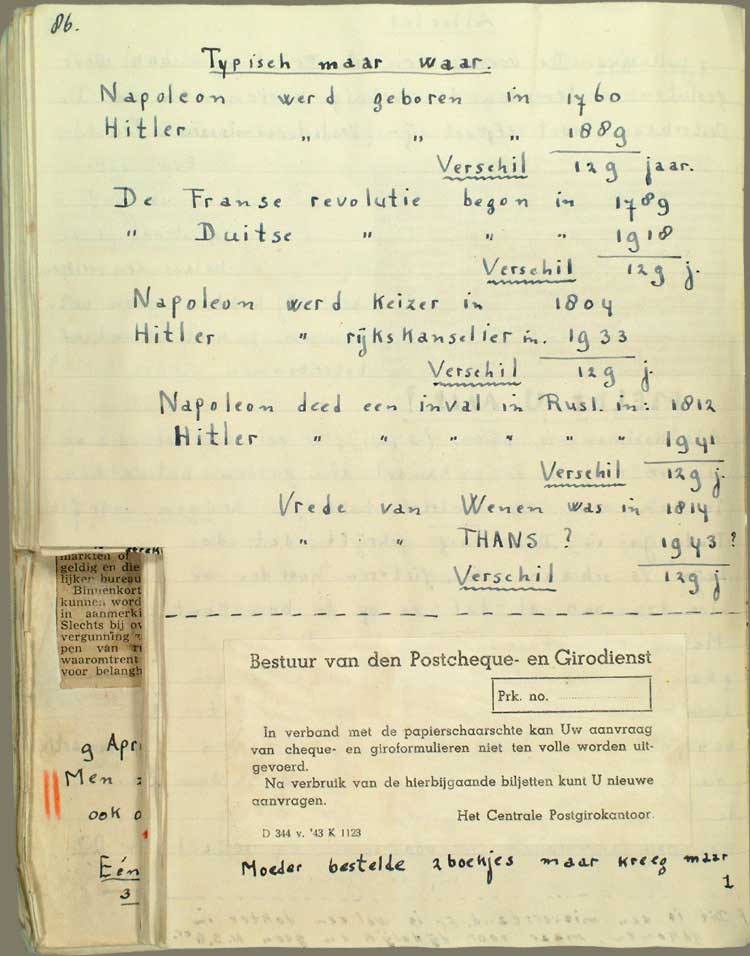 86.
Typisch maar waar.
Napoleon werd geboren in 1760
Hitler " " " 1889
Verschil 129 jaar.
De Franse revolutie begon in 1789
" Duitse " " " 1918
Verschil 129 j.
Napoleon werd Keizer in 1804
Hitler " rijkskanselier in. 1933
Verschil 129 j.
Napoleon deed een inval in Rusl. in: 1812
Hitler " " " " " " 1941
Verschil 129 j.
Vrede van Wenen was in 1814
" " THANS? 1943?
Verschil 129 j
markten of
geldig en die
lijker bureau
Binnenkort
kunnen word
in aanmerki
Slechts bij ov
vergunning
pen van
waaromtrent
voor belangh
9 Apri
Men
ook
Eén
3
Bestuur van den Postcheque- en Girodienst
Prk. no.
In verband met de papierschaarschte kan Uw aanvraag
van cheque- en giroformulieren niet ten volle worden uit-
gevoerd.
Na verbruik van de hierbijgaande biljetten kunt U nieuwe
aanvragen.
Het Centrale Postgirokantoor.
D 344 v. '43 K 1123
Moeder bestelde 2 boekjes maar kreeg maar
1